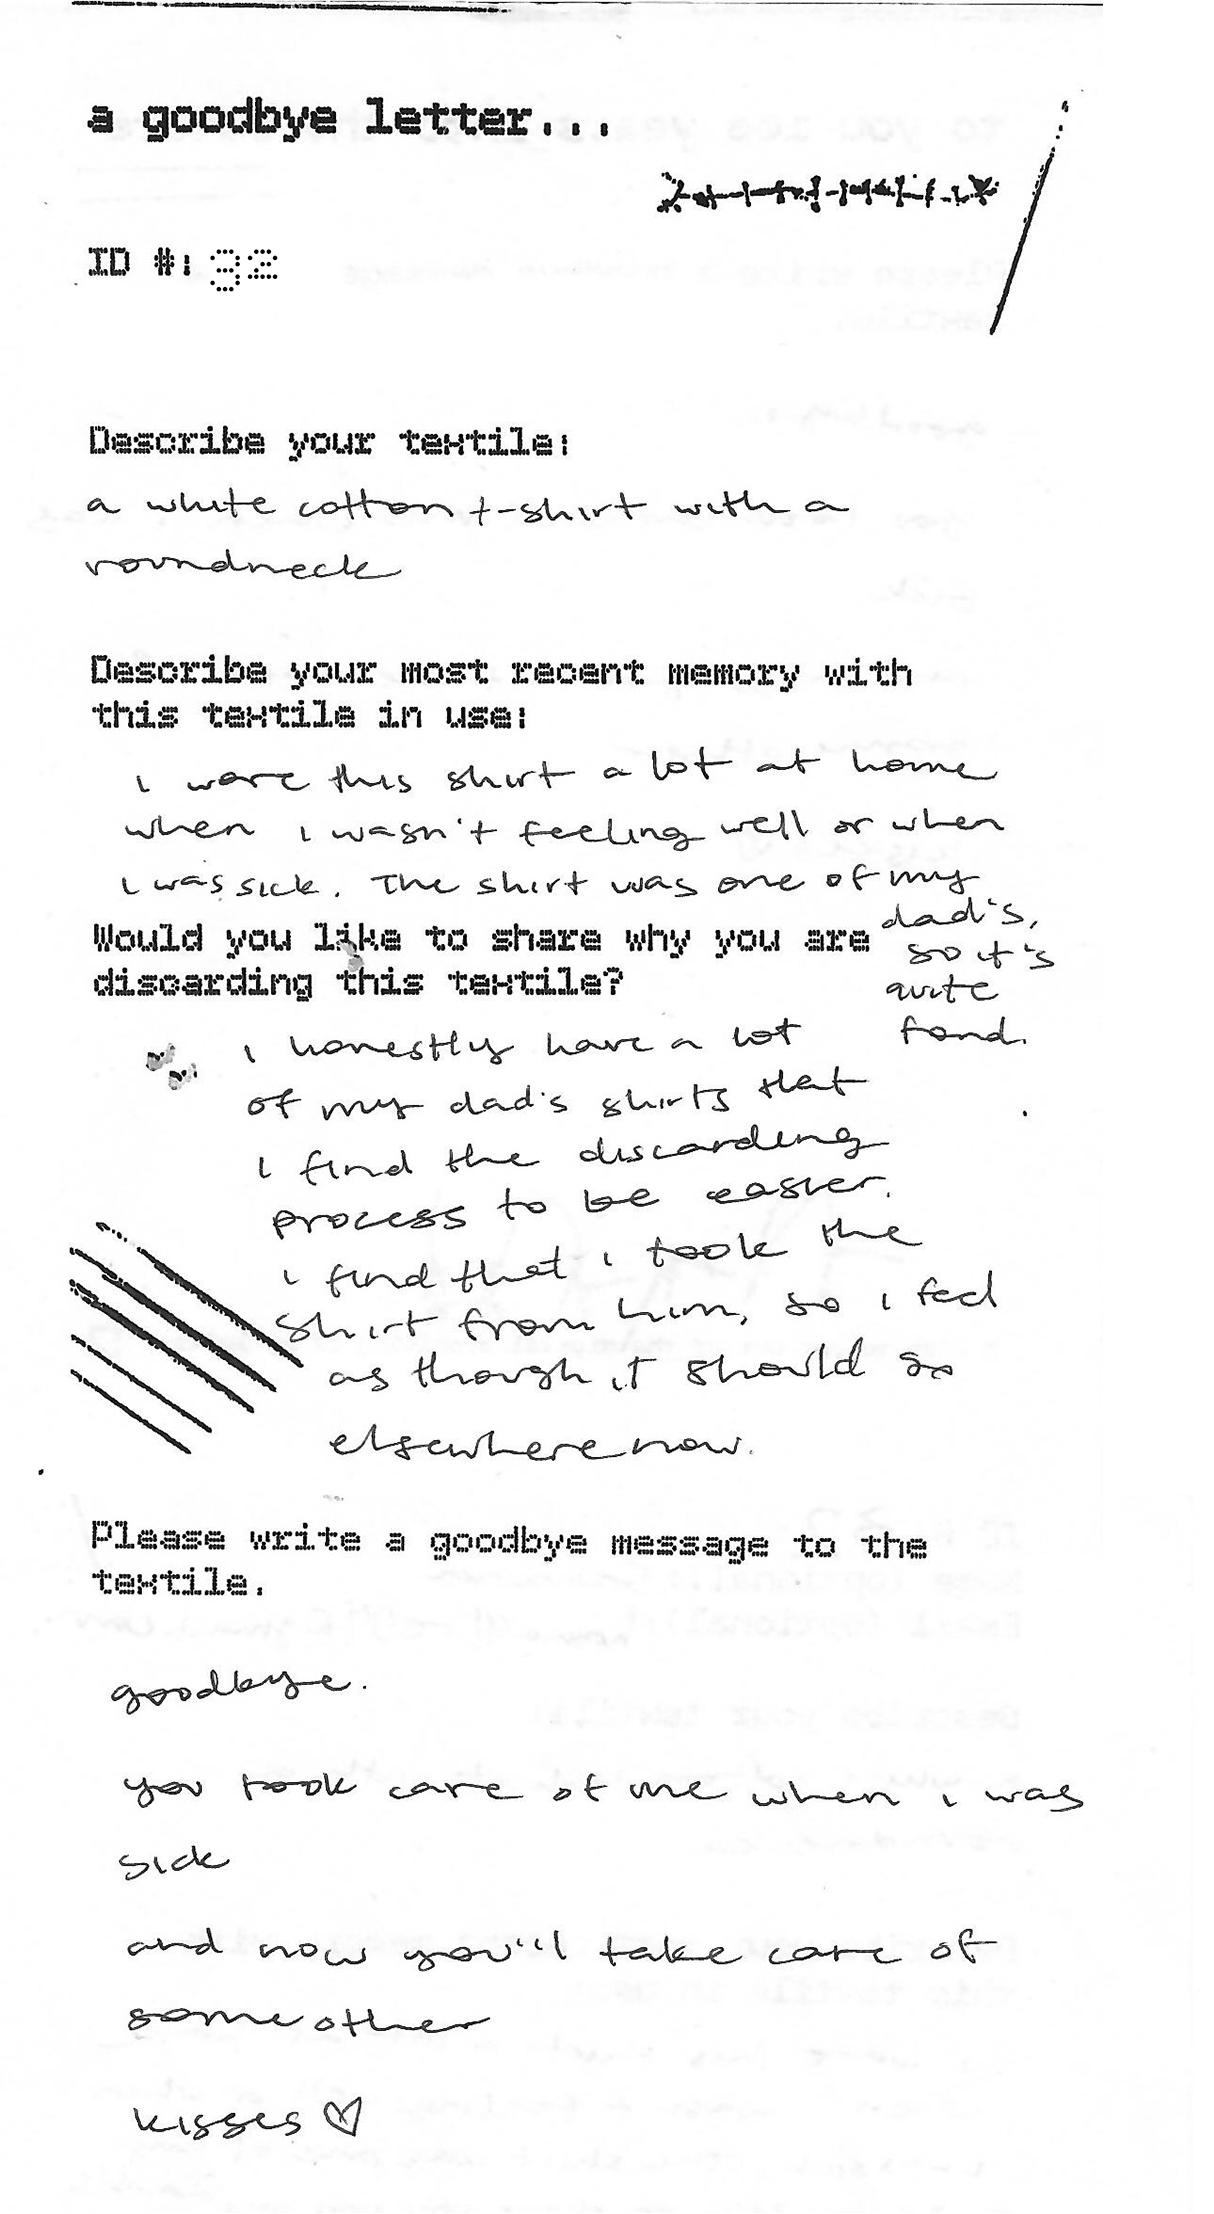 a goodbye letter...
ID #: 32
Describe your textile:
a white cotton t-shirt with a
roundneck
Describe your most recent memory with
this textile in use:
i wore this shirt a lot at home
when i wasn't feeling well or when
i was sick. The shirt was one of my
dad's,
so it's
quite
fond.
Would you like to share why you are
discarding this textile?
i honestly have a lot
of my dad's shirts that
i find the discarding
process to be easier.
i find that i took the
shirt from him, so i feel
as though it should go
elsewhere now.
Please write a goodbye message to the
textile.
goodbye.
you took care of me when i was
sick
and now you'll take care of
some other
kisses ♡